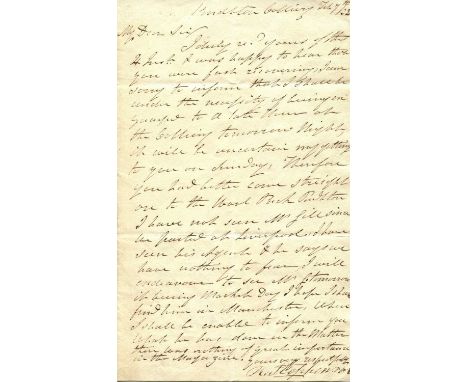 Pendleton Colliery Feb 7th
My Dear Sir
I duly recd yours of the
4 Inst & was happy to hear that
you were fast recovering, I am
sorry to inform that I shall be
under the necessity of being en
gaged to a late Hour at
the Colliery tomorrow Night
it will be uncertain my getting
to you on Sunday, Therefore
you had better come straight
on to the
I have not seen Mr Gill since
we parted at Liverpool, I have
seen his Agent & he says we
have nothing to fear, I will
endeavour to see Mr tomorrow
it being Market Day I hope I shall
find him in Manchester, When
I shall be enabled to inform you
what he has done in the Matter
there was nothing of great importance
in the yours very respectfully